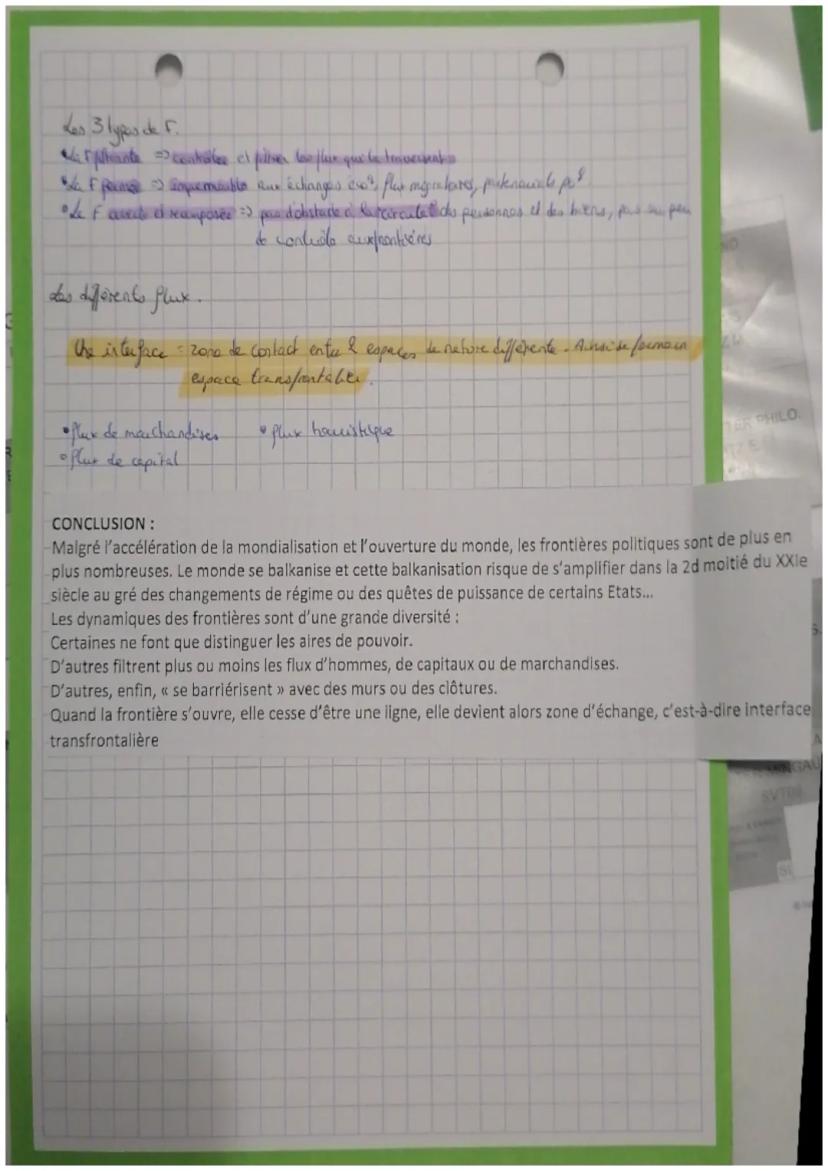 Les 3 types de F.
• La F filtrante => contrôler et filtrer les flux qui la traversent
• La F fermée => imperméable aux échanges éco², flux migratoires, partenariats po²
• La F ouverte et recomposée => pas d'obstacle à la circulat° des personnes et des biens, pas ou peu
de contrôle aux frontières
Les différents flux.
Une interface = zone de contact entre 2 espaces de nature différente. Ainsi se forme un
espace transfrontalier.
• flux de marchandises • flux touristique
• flux de capital
CONCLUSION :
Malgré l'accélération de la mondialisation et l'ouverture du monde, les frontières politiques sont de plus en
plus nombreuses. Le monde se balkanise et cette balkanisation risque de s'amplifier dans la 2d moitié du XXIe
siècle au gré des changements de régime ou des quêtes de puissance de certains Etats...
Les dynamiques des frontières sont d'une grande diversité :
Certaines ne font que distinguer les aires de pouvoir.
D'autres filtrent plus ou moins les flux d'hommes, de capitaux ou de marchandises.
D'autres, enfin, « se barriérisent » avec des murs ou des clôtures.
Quand la frontière s'ouvre, elle cesse d'être une ligne, elle devient alors zone d'échange, c'est-à-dire interface
transfrontalière
PHILO.